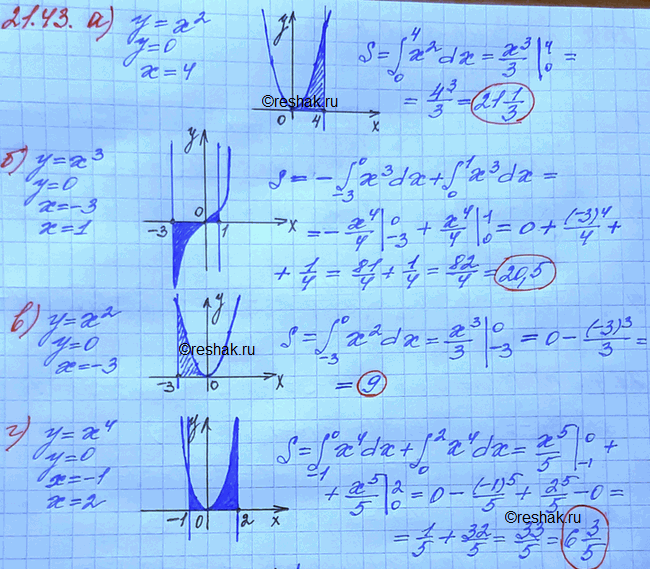 21.43. а) y = x²
y = 0
x = 4
y
©reshak.ru
0 4 x
S = ∫₀⁴ x² dx = x³/3 |₀⁴ =
= 4³/3 = 21 1/3
б) y = x³
y = 0
x = -3
x = 1
y
-3 0 1 x
S = - ∫₋₃⁰ x³ dx + ∫₀¹ x³ dx =
= - x⁴/4 |₋₃⁰ + x⁴/4 |₀¹ = 0 + (-3)⁴/4 +
+ 1/4 = 81/4 + 1/4 = 82/4 = 20,5
в) y = x²
y = 0
x = -3
y
©reshak.ru
-3 0 x
S = ∫₋₃⁰ x² dx = x³/3 |₋₃⁰ = 0 - (-3)³/3 =
= 9
г) y = x⁴
y = 0
x = -1
x = 2
y
-1 0 2 x
S = ∫₋₁⁰ x⁴ dx + ∫₀² x⁴ dx = x⁵/5 |₋₁⁰ +
+ x⁵/5 |₀² = 0 - (-1)⁵/5 + 2⁵/5 - 0 =
©reshak.ru
= 1/5 + 32/5 = 33/5 = 6 3/5